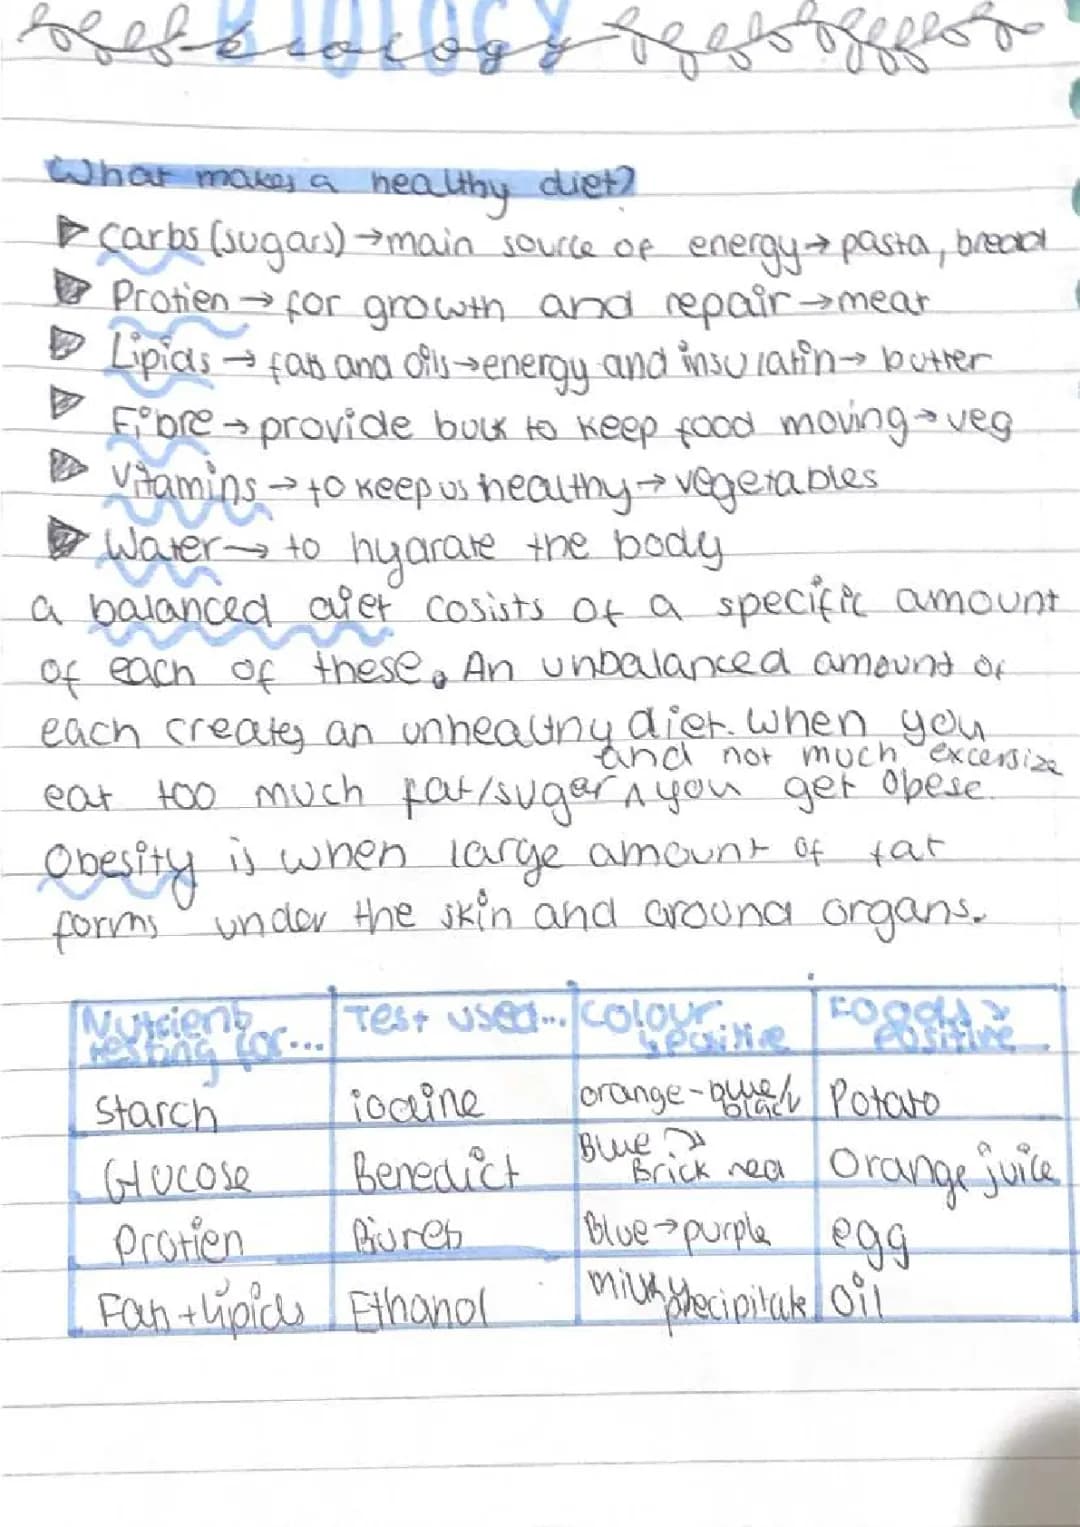 BIOLOGY
biology
What makes a healthy diet?
Carbs (sugars) → main source of energy → pasta, bread
Protien → for growth and repair → meat
Lipids → fats and oils → energy and insulatin → butter
Fibre → provide bulk to keep food moving → veg
Vitamins → to keep us healthy → vegetables
Water → to hydrate the body
a balanced diet cosists of a specific amount
of each of these. An unbalanced amount of
each creates an unhealthy diet. When you
and not much excersize
eat too much fat/sugar ^ you get obese.
Obesity is when large amount of fat
forms under the skin and around organs.
Nutrient testing for... Test used... Colour positive Foods positive
Starch iodine orange - blue/black Potato
Glucose Benedict Blue → Brick red Orange juice
Protien Biuret Blue → purple egg
Fats + lipids Ethanol milky precipitate Oil